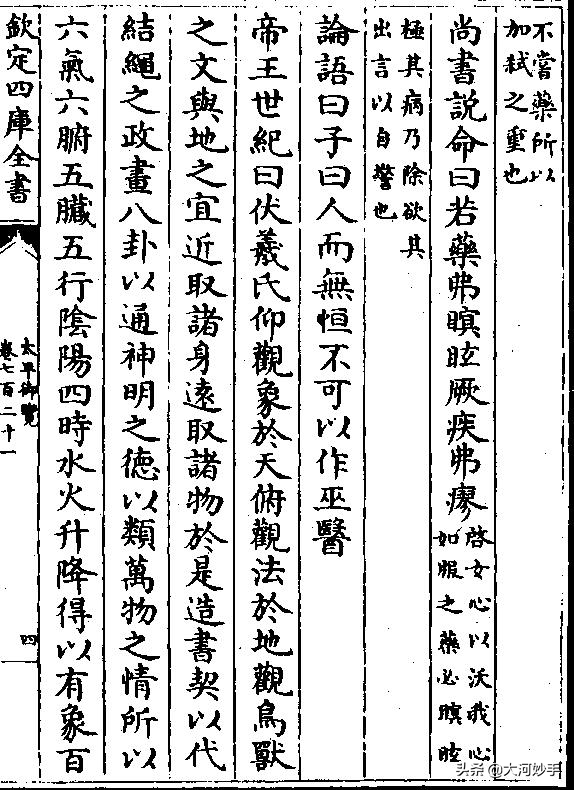 不嘗藥所以
加弑之重也
尚書說命曰若藥弗瞑眩厥疾弗瘳
啓女心以沃我心
如服之藥必瞑眩
極其病乃除欲其
出言以自警也
論語曰子曰人而無恒不可以作巫醫
帝王世紀曰伏羲氏仰觀象於天俯觀法於地觀鳥獸
之文與地之宜近取諸身遠取諸物於是造書契以代
結繩之政畫八卦以通神明之德以類萬物之情所以
六氣六腑五臟五行陰陽四時水火升降得以有象百
欽定四庫全書
太平御覽
卷七百二十一
四
头条 @大河妙手